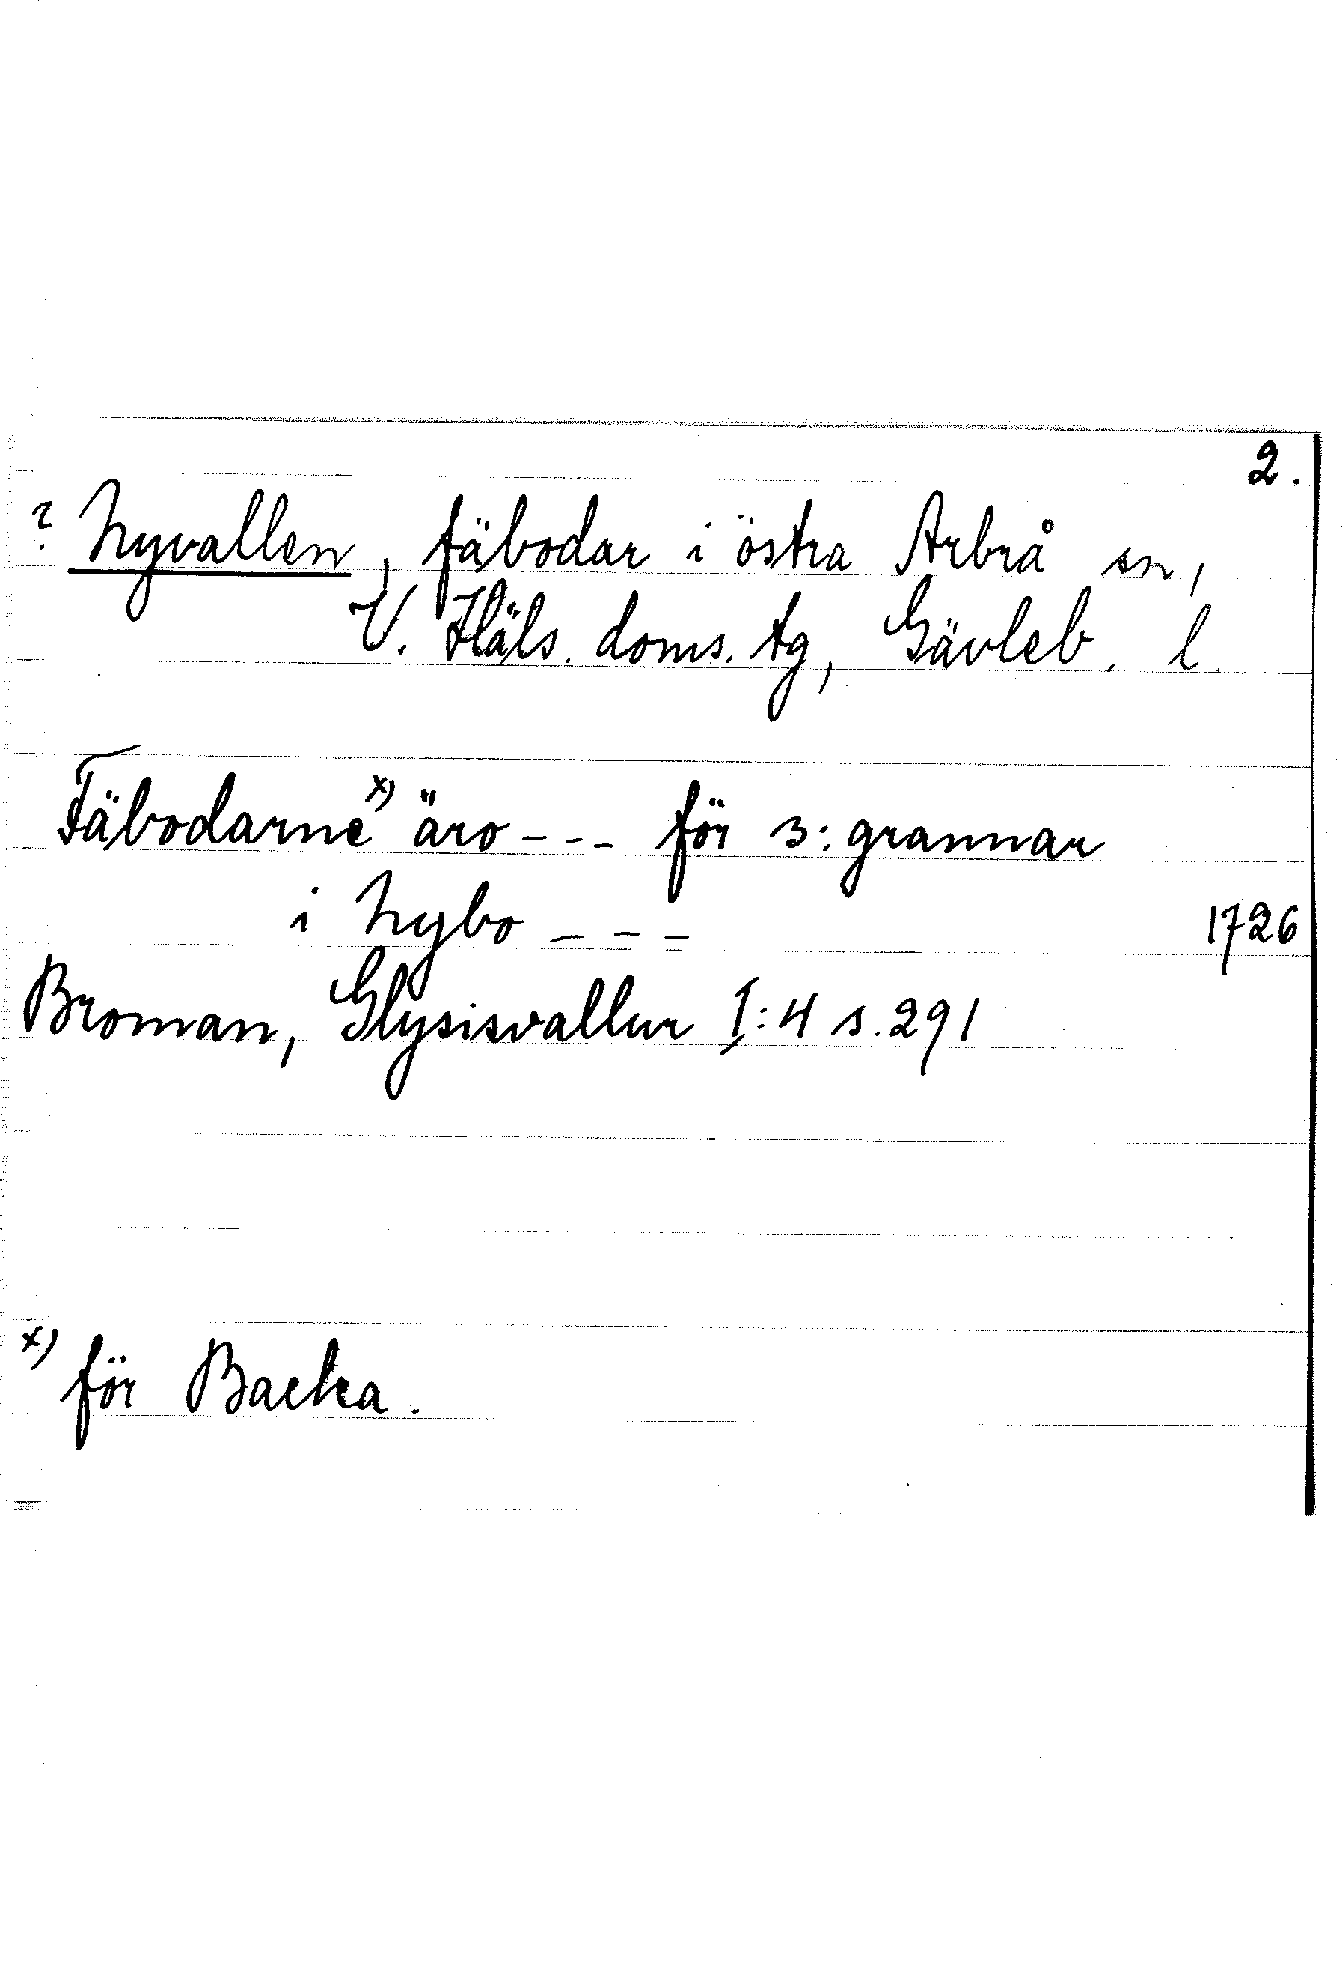 2.
? Nyvallen, fäbodar i östra Arbrå sn,
V. Häls. doms. tg, Gävleb. l.
Fäbodarne x) äro - - - för 3: grannar
i Nybo - - - 1726
Broman, Glysisvallur I:4 s. 291
x) för Backa.